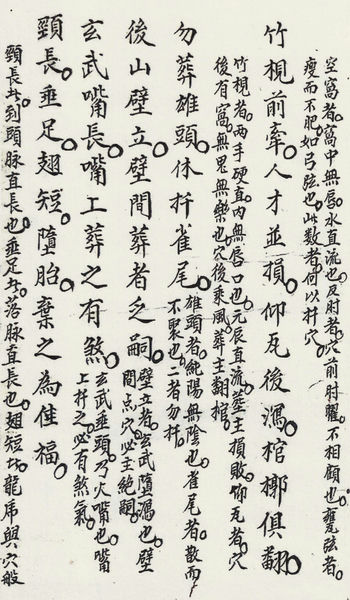 空窩者窩中無唇水直流也反肘者穴前肘曜不相顧也甕弦者
瘦而不肥如弓弦也此數者何以扦穴
竹梘前牽人才並損仰瓦後瀉棺槨俱翻
竹梘者两手硬直内無唇口也元辰直流葬主損敗仰瓦者穴
後有窩無鬼無樂也穴後乘風葬主翻棺
勿葬雄頭休扦雀尾
雄頭者純陽無陰也雀尾者散而
不聚也二者勿扦
後山壁立壁間葬者乏嗣
壁立者玄武墮瀉也壁
間点穴必主絶嗣
玄武嘴長嘴上葬之有煞
玄武垂頭乃火嘴也嘴
上扦之必有煞氣
頸長垂足翅短墮胎棄之為佳福
頸長者到頭脉直長也垂足者落脉直長也翅短者龍虎與穴般